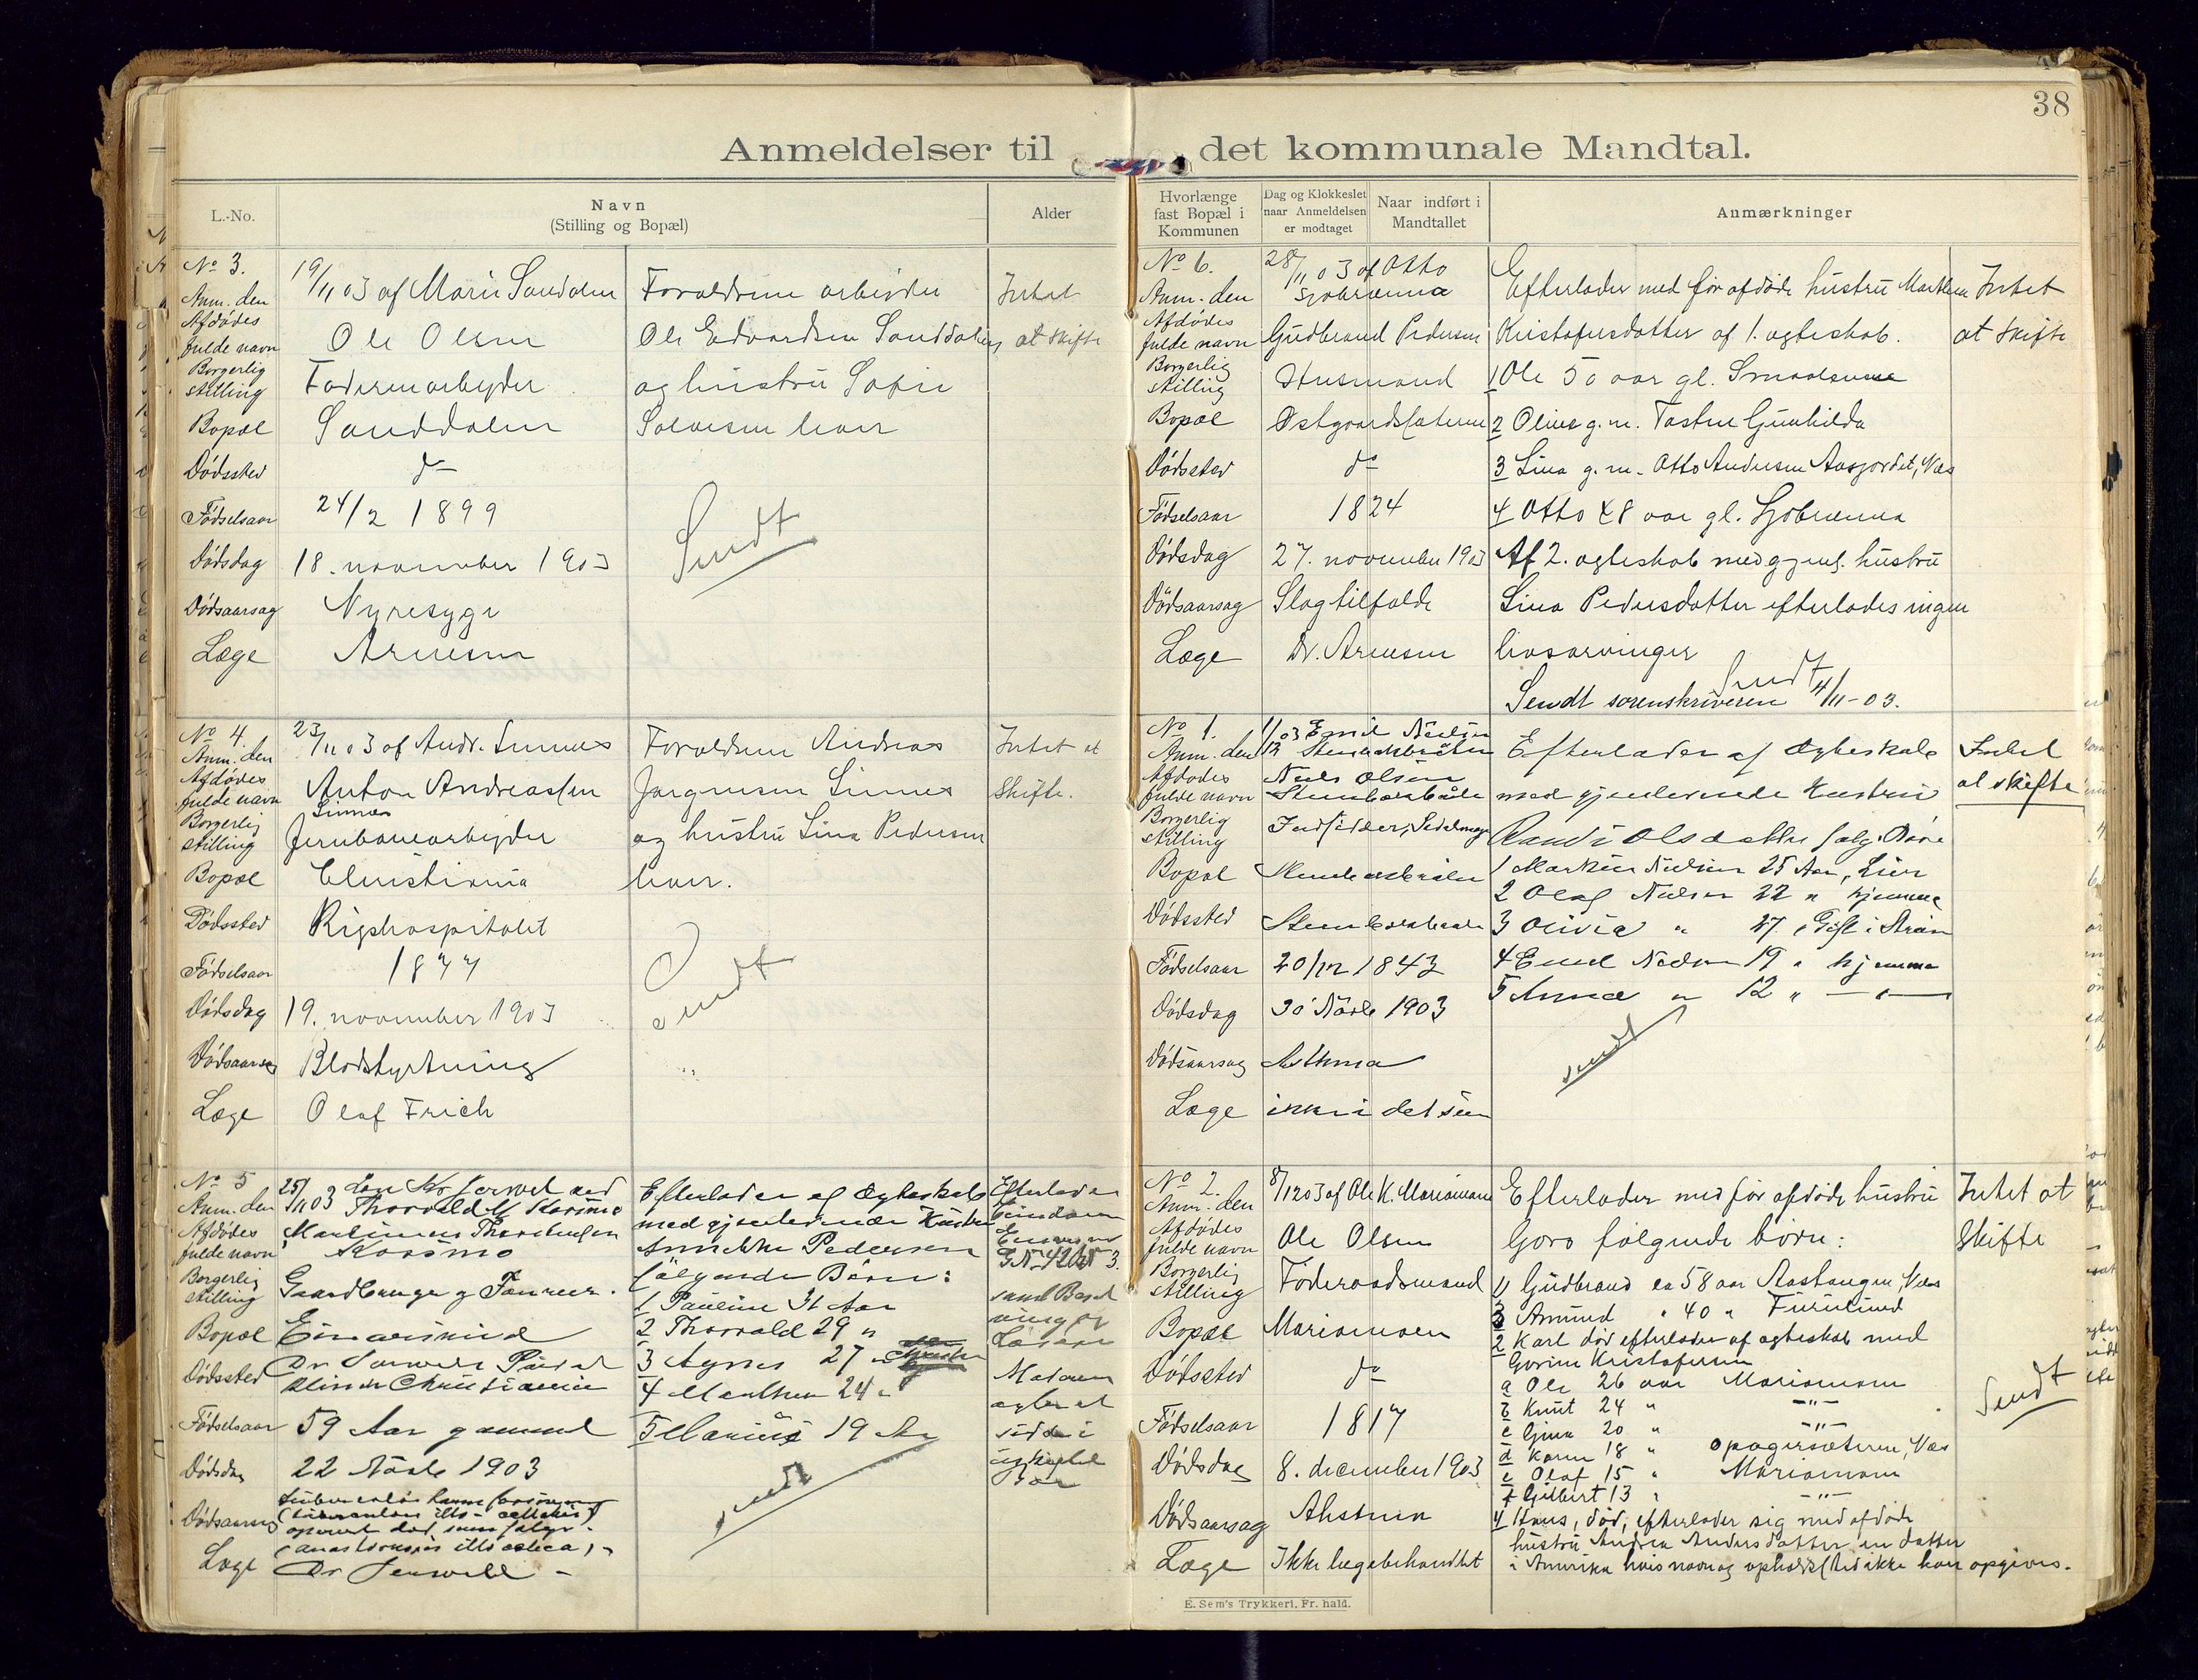 38
Anmeldelser til det kommunale Mandtal.
L.-No.
Navn
(Stilling og Bopæl)
Alder
Hvorlænge
fast Bopæl i
Kommunen
Dag og Klokkeslet
naar Anmeldelsen
er modtaget
Naar indført i
Mandtallet
Anmærkninger
No 3.
Anm. den 19/11 03 af Marie Sanddalen
Afdødes
fulde navn Ole Olsen
Borgerlig
stilling Fødevarearbejder
Bopæl Sanddalen
Dødssted do
Fødselsaar 24/2 1899
Dødsdag 18. november 1903
Dødsaarsag Nyresyge
Læge Arnesen
Forældrene arbejder
Ole Edvardsen Sanddalen
og hustru Sofie
Solvesen lever
Sendt
Intet
at skifte
No 4
Anm. den 23/11 03 af Andr. Linnes
Afdødes
fulde navn Anton Andreassen
Linnes
Borgerlig
stilling Jernbanearbejder
Bopæl Christiania
Dødssted Rigshospitalet
Fødselsaar 1877
Dødsdag 19. november 1903
Dødsaarsag Blodstyrtning
Læge Olaf Frich
Forældrene Andreas
Jørgensen Linnes
og hustru Lina Pedersen
lever.
Sendt
Intet at
Skifte.
No 5
Anm. den 25/11 03
Thorvald M Korsmo
Afdødes
fulde navn Martinus Thorstensen
Korsmo
Borgerlig
stilling Gaardbruger og
Bopæl
Dødssted Dr
Christiania
Fødselsaar 59 Aar gammel
Dødsdag 22 Novbr 1903
Dødsaarsag
Læge Dr
Efterlader af Ægteskab
med gjenlevende Hustru
Annikke Pedersen
følgende Børn:
1 Pauline 31 Aar
2 Thorvald 29 "
3 Agnes 27 "
4 Marthea 24 "
5 Marius 19 Aar
sendt
Efterlader
No 6.
Anm. den 28/11 03 af Otto
Sjøbrænna
Afdødes
fulde navn Gudbrand Pedersen
Borgerlig
stilling Husmand
Bopæl Østgaardsæteren
Dødssted do
Fødselsaar 1824
Dødsdag 27. november 1903
Dødsaarsag Slagtilfælde
Læge Dr. Arnesen
Efterlader med før afdøde hustru Marthea
Kristofersdatter af 1. ægteskab.
1 Ole 50 aar gl. Smaalenene
2 Oline g. m. Tosten Gunhilda
3 Lina g. m. Otto Andersen Aasjordet, Næs
4 Otto 48 aar gl. Sjøbrænna
Af 2. ægteskab med gjenl. hustru
Lina Pedersdatter efterlades ingen
livsarvinger
Sendt
Sendt sorenskriveren 4/11-03.
Intet
at skifte
No 1.
Anm. den 1/12 03 Emil Nielsen
Afdødes
fulde navn Niels Olsen
Borgerlig
stilling
Bopæl
Dødssted
Fødselsaar 20/12 1843
Dødsdag 30 Novbr 1903
Dødsaarsag Asthma
Læge ikke i det sene
Efterlader af Ægteskab
med gjenlevende Hustru
Randi Olsdatter følg. Børn
1 Martin Nielsen 25 Aar, Lier
2 Olaf Nielsen 22 " hjemme
3 Olivia " 27 " Gift i
4 Emil Nielsen 19 " hjemme
5 Anna " 12 " — " —
sendt
Intet
at skifte
No 2.
Anm. den 8/12 03 af Ole K. Mariamoen
Afdødes
fulde navn Ole Olsen
Borgerlig
stilling Føderaadsmand
Bopæl Mariamoen
Dødssted do
Fødselsaar 1817
Dødsdag 8. december 1903
Dødsaarsag Alstren
Læge Ikke lægebehandlet
Efterlader med før afdøde hustru
Goro følgende børn:
1 Gudbrand ca 58 aar Aastangen, Næs
3 Amund " 40 " Furulund
2 Karl død efterlader af ægteskab med
Gorine Kristofersen
a Ole 26 aar Mariamoen
b Knut 24 " —"—
c Gina 20 " —"—
d Karen 18 " Opagersæteren, Næs
e Olaf 15 " Mariamoen
f Gilbert 13 " —"—
4 Hans, død, efterlader sig med afdøde
hustru Andrea Andersdatter en datter
i Amerika hvis navn og opholdssted ikke kan opgives.
Intet at
Skifte
Sendt
E. Sem's Trykkeri, Fr.hald.